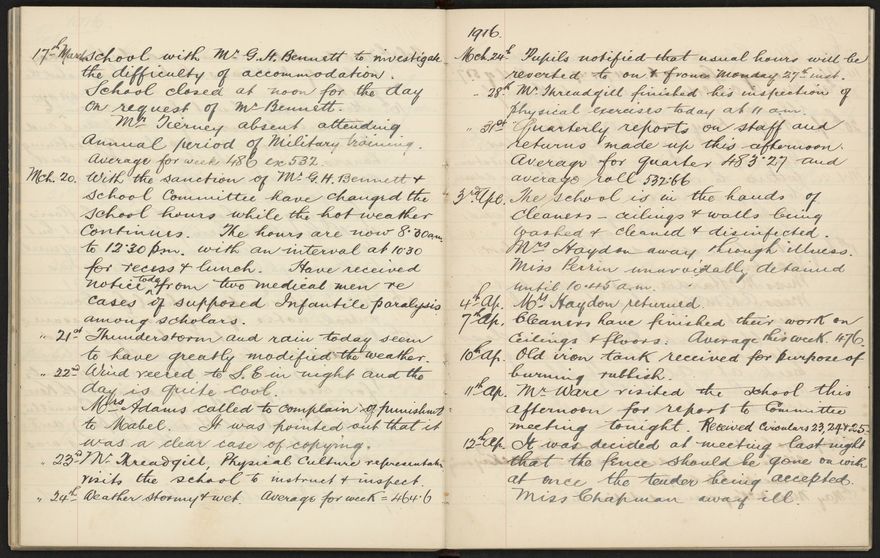 17th March School with Mr G.H. Bennett to investigate
the difficulty of accommodation.
School closed at noon for the day
on request of Mr Bennett.
Mr Tierney absent attending
Annual period of Military training.
Average for week 486 ex 532
Mch. 20. With the sanction of Mr G.H. Bennett &
School Committee have changed the
school hours while the hot weather
continues. The hours are now 8.30am
to 12.30 p.m. with an interval at 10.30
for recess & lunch. Have received
notice today from two medical men re
cases of supposed Infantile paralysis
among scholars.
" 21st Thunderstorm and rain today seem
to have greatly modified the weather.
" 22nd Wind veered to S.E in night and the
day is quite cool.
Mrs Adams called to complain of punishmt
to Mabel. It was pointed out that it
was a clear case of copying.
" 23rd Mr Threadgill, Physical Culture representative
visits the school to instruct & inspect.
" 24th Weather stormy & wet. Average for week = 464.6
1916.
Mch. 24th Pupils notified that usual hours will be
reverted to on & from Monday 27th inst.
" 28th Mr Threadgill finished his inspection of
physical exercises today at 11 a.m.
" 31st Quarterly reports on staff and
returns made up this afternoon.
Average for quarter 483.27 and
average roll 532.66
3rd Apl. The school is in the hands of
cleaners - ceilings & walls being
washed & cleaned & disinfected.
Mrs Haydon away through illness.
Miss Perrin unavoidably detained
until 10.45 a.m.
4th Ap. Mrs Haydon returned.
7th Ap. Cleaners have finished their work on
ceilings & floors. Average this week 476
10th Ap. Old iron tank received for purpose of
burning rubbish.
11th Ap. Mr Ware visited the school this
afternoon for report to Committee
meeting tonight. Received Circulars 23, 24 & 25
12th Ap. It was decided at meeting last night
that the fence should be gone on with
at once the tender being accepted.
Miss Chapman away ill.